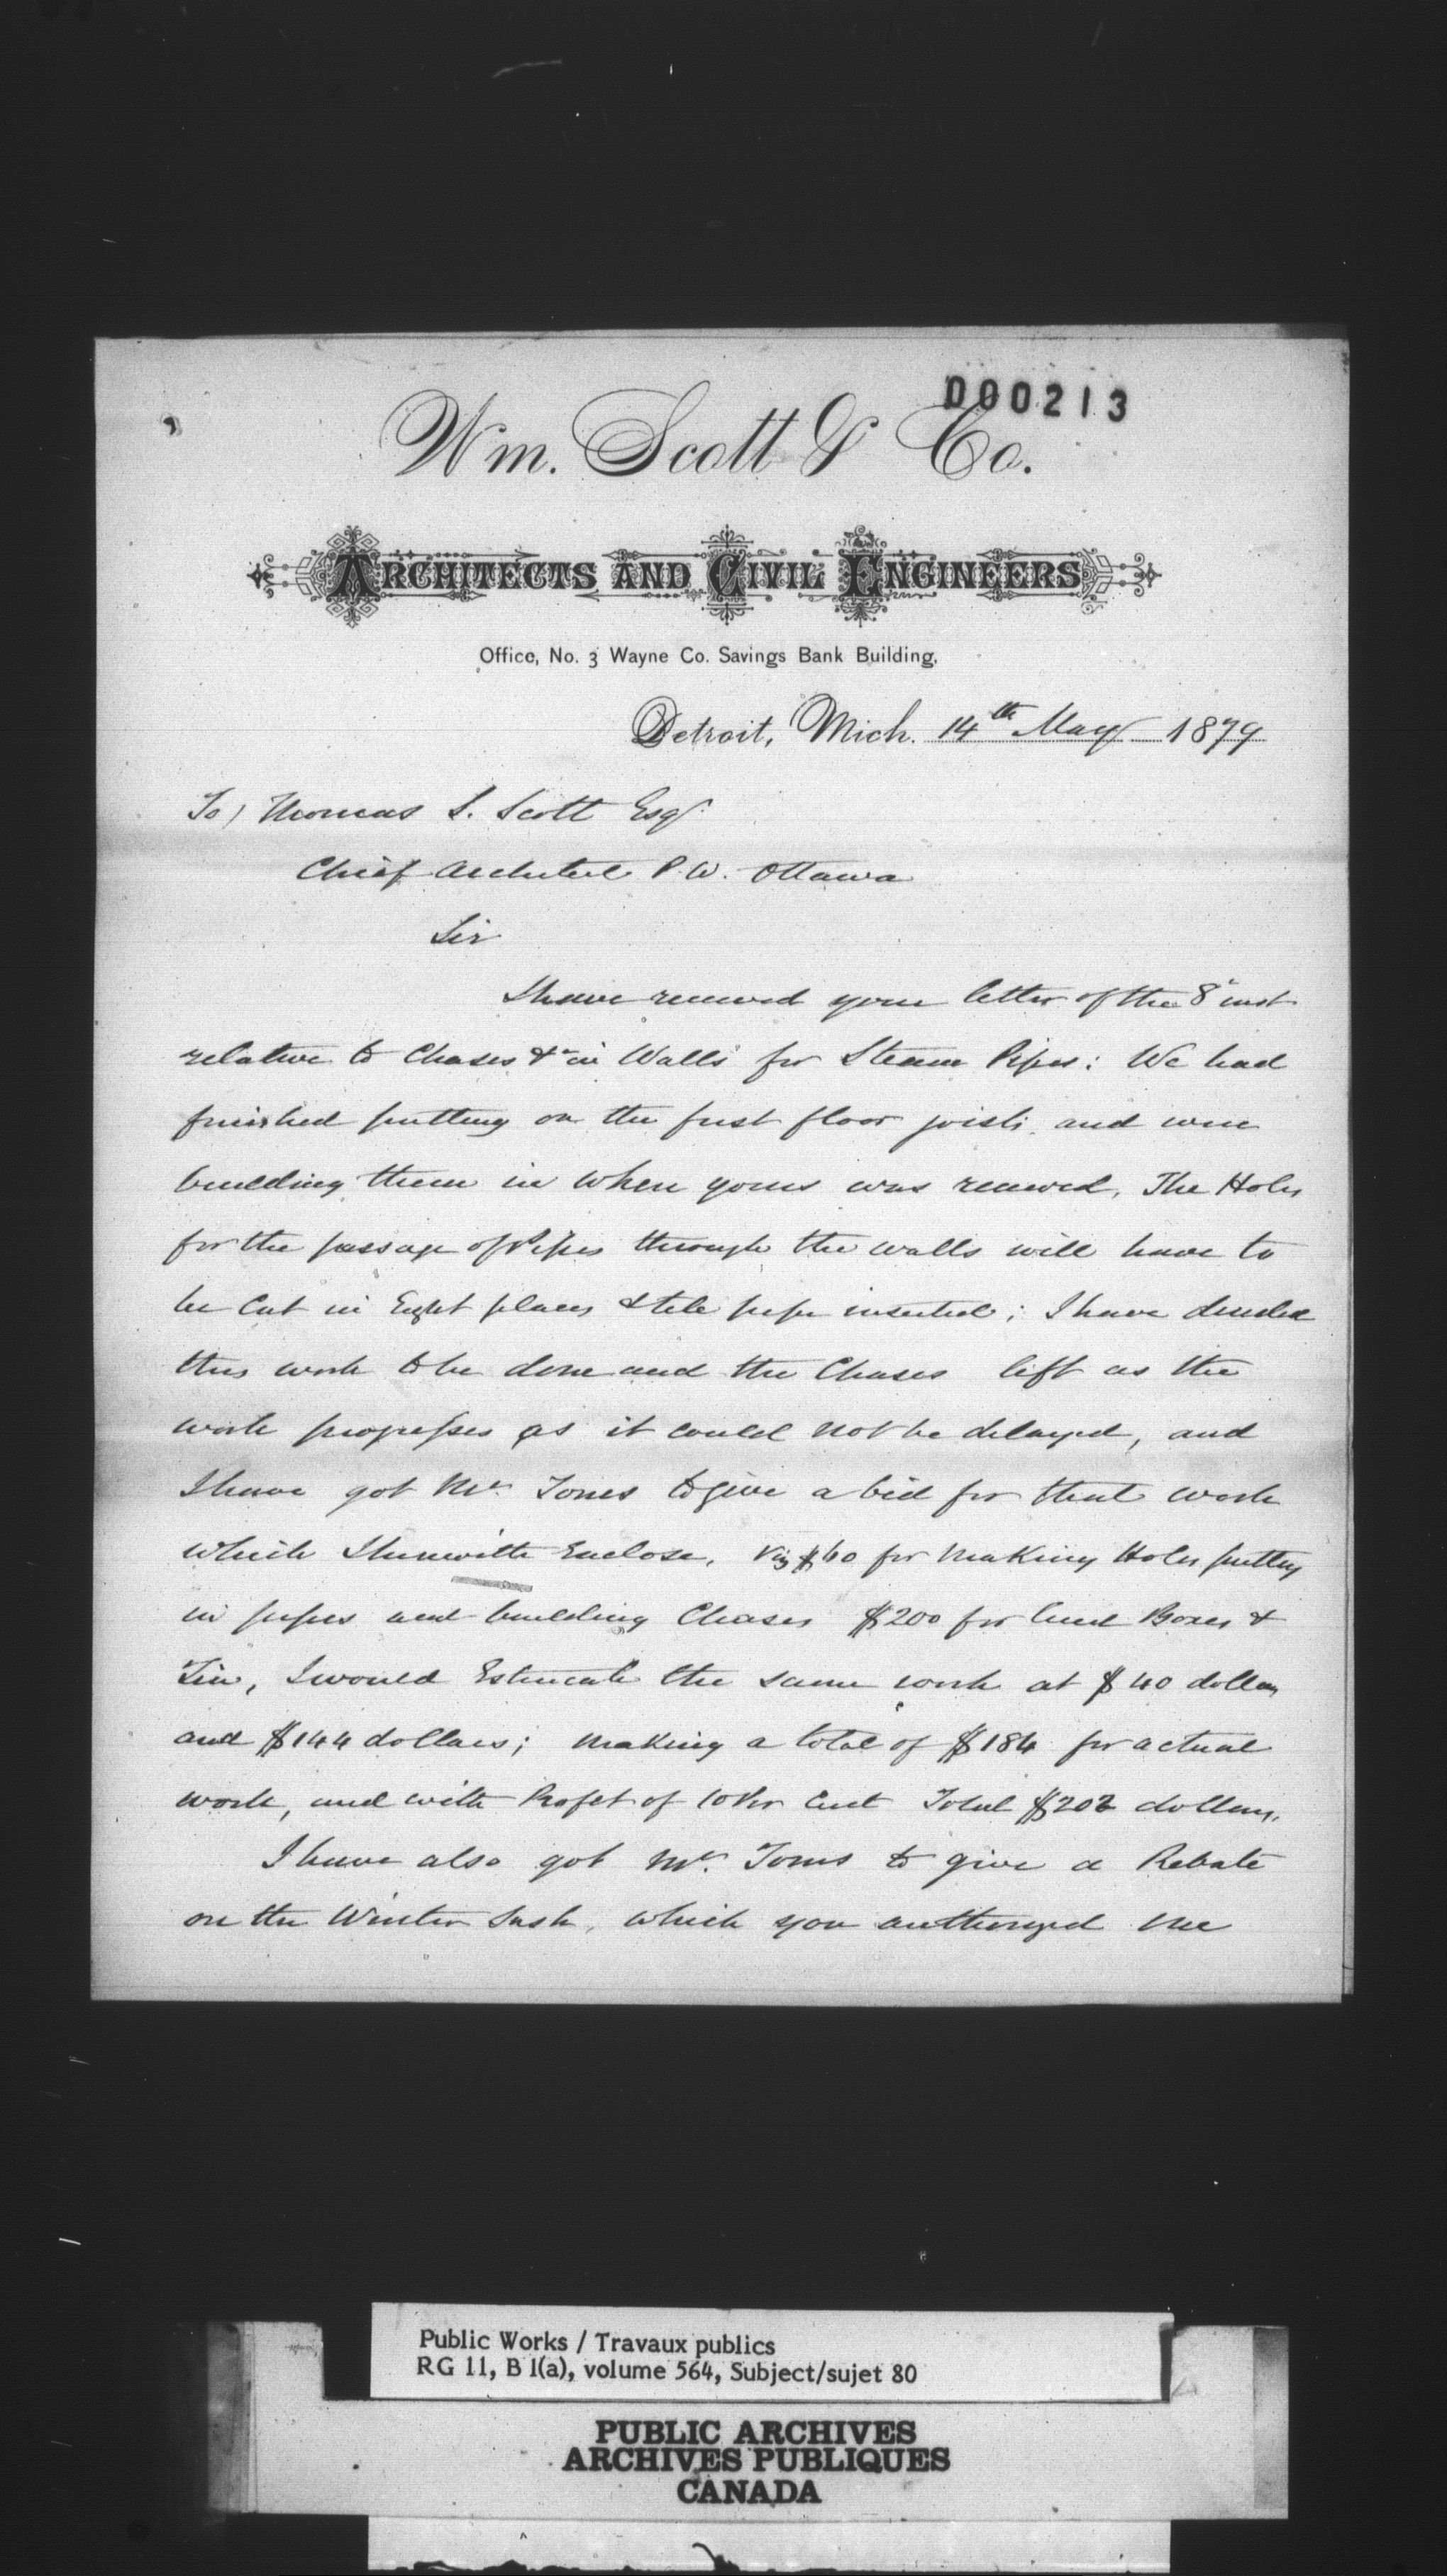 000213
Wm. Scott & Co.
ARCHITECTS AND CIVIL ENGINEERS
Office, No. 3 Wayne Co. Savings Bank Building.
Detroit, Mich. 14th May 1879
To / Thomas S. Scott Esqr
Chief Architect P.W. Ottawa
Sir
I have received your letter of the 8" inst
relative to Chases &c in Walls for Steam Pipes: We had
finished putting on the first floor joists and were
building them in when yours was received, The Holes
for the passage of Pipes through the walls will have to
be Cut in Eight places & tile pipe inserted; I have directed
this work to be done and the Chases left as the
work progresses as it could not be delayed, and
I have got Mr. Tomes to give a bid for that work
which I herewith Enclose, Viz $60 for Making Holes putting
in pipes and building Chases $200 for Boxes &
Tin, I would Estimate the same work at $40 dollars
and $144 dollars; Making a total of $184 for actual
work, and with Profit of 10 Per Cent Total $202 dollars.
I have also got Mr. Tomes to give a Rebate
on the Winter Sash, which you authorized me
Public Works / Travaux publics
RG 11, B 1(a), volume 564, Subject/sujet 80
PUBLIC ARCHIVES
ARCHIVES PUBLIQUES
CANADA